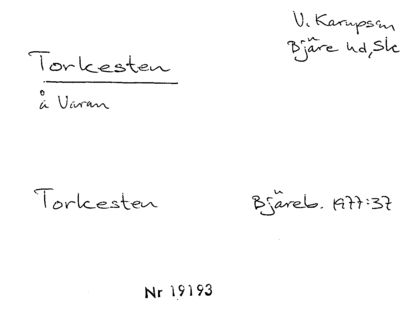 V. Karupsm
Bjäre hd, Sk
Torkesten
å Varan
Torkesten
Bjäreb. 1977:37
Nr 19193